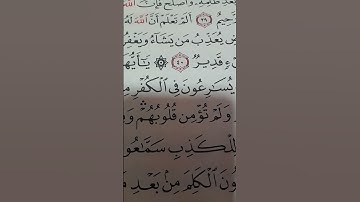 بَعْدِ ظُلْمِهِۦ وَأَصْلَحَ فَإِنَّ
حِيمٌ ٣٩ أَلَمْ تَعْلَمْ أَنَّ ٱللَّهَ لَهُۥ
ضِ يُعَذِّبُ مَن يَشَآءُ وَيَغْفِرُ
ءٍ قَدِيرٌ ٤٠ يَٰٓأَيُّهَا
يُسَٰرِعُونَ فِى ٱلْكُفْرِ
وَلَمْ تُؤْمِن قُلُوبُهُمْ
لِلْكَذِبِ سَمَّٰعُو
ونَ ٱلْكَلِمَ مِنۢ بَعْدِ